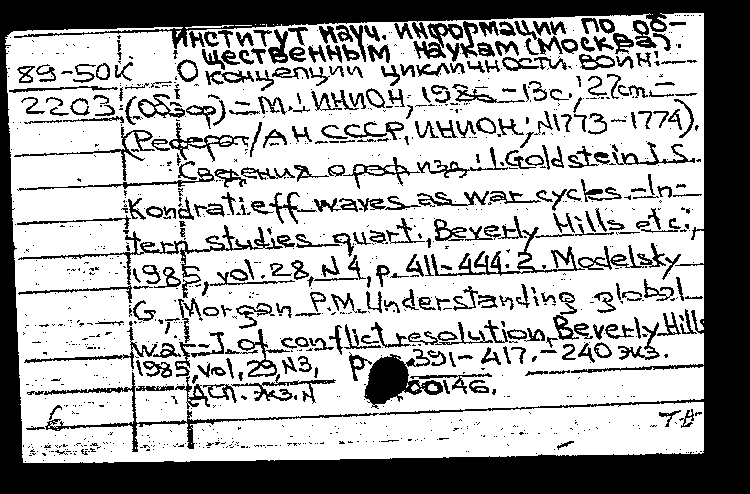 Институт науч. информации по об-
щественным наукам (Москва).
89-50К О концепции цикличности войн:
2203 (Обзор). - М.: ИНИОН, 1986 - 13с.; 27cm. -
(Реферат/АН СССР, ИНИОН; N1773-1774).
Сведения о реф. изд.: 1. Goldstein J.S.
Kondratieff waves as war cycles. - In-
tern studies quart., Beverly Hills etc.,
1985, vol. 28, N4, p. 411-444. 2. Modelsky
G., Morgan P.M. Understanding global
war. - J. of conflict resolution, Beverly Hills
1985, vol, 29, N3, p. 391-417. - 240 экз.
ДСП. Экз. N 00146.
6